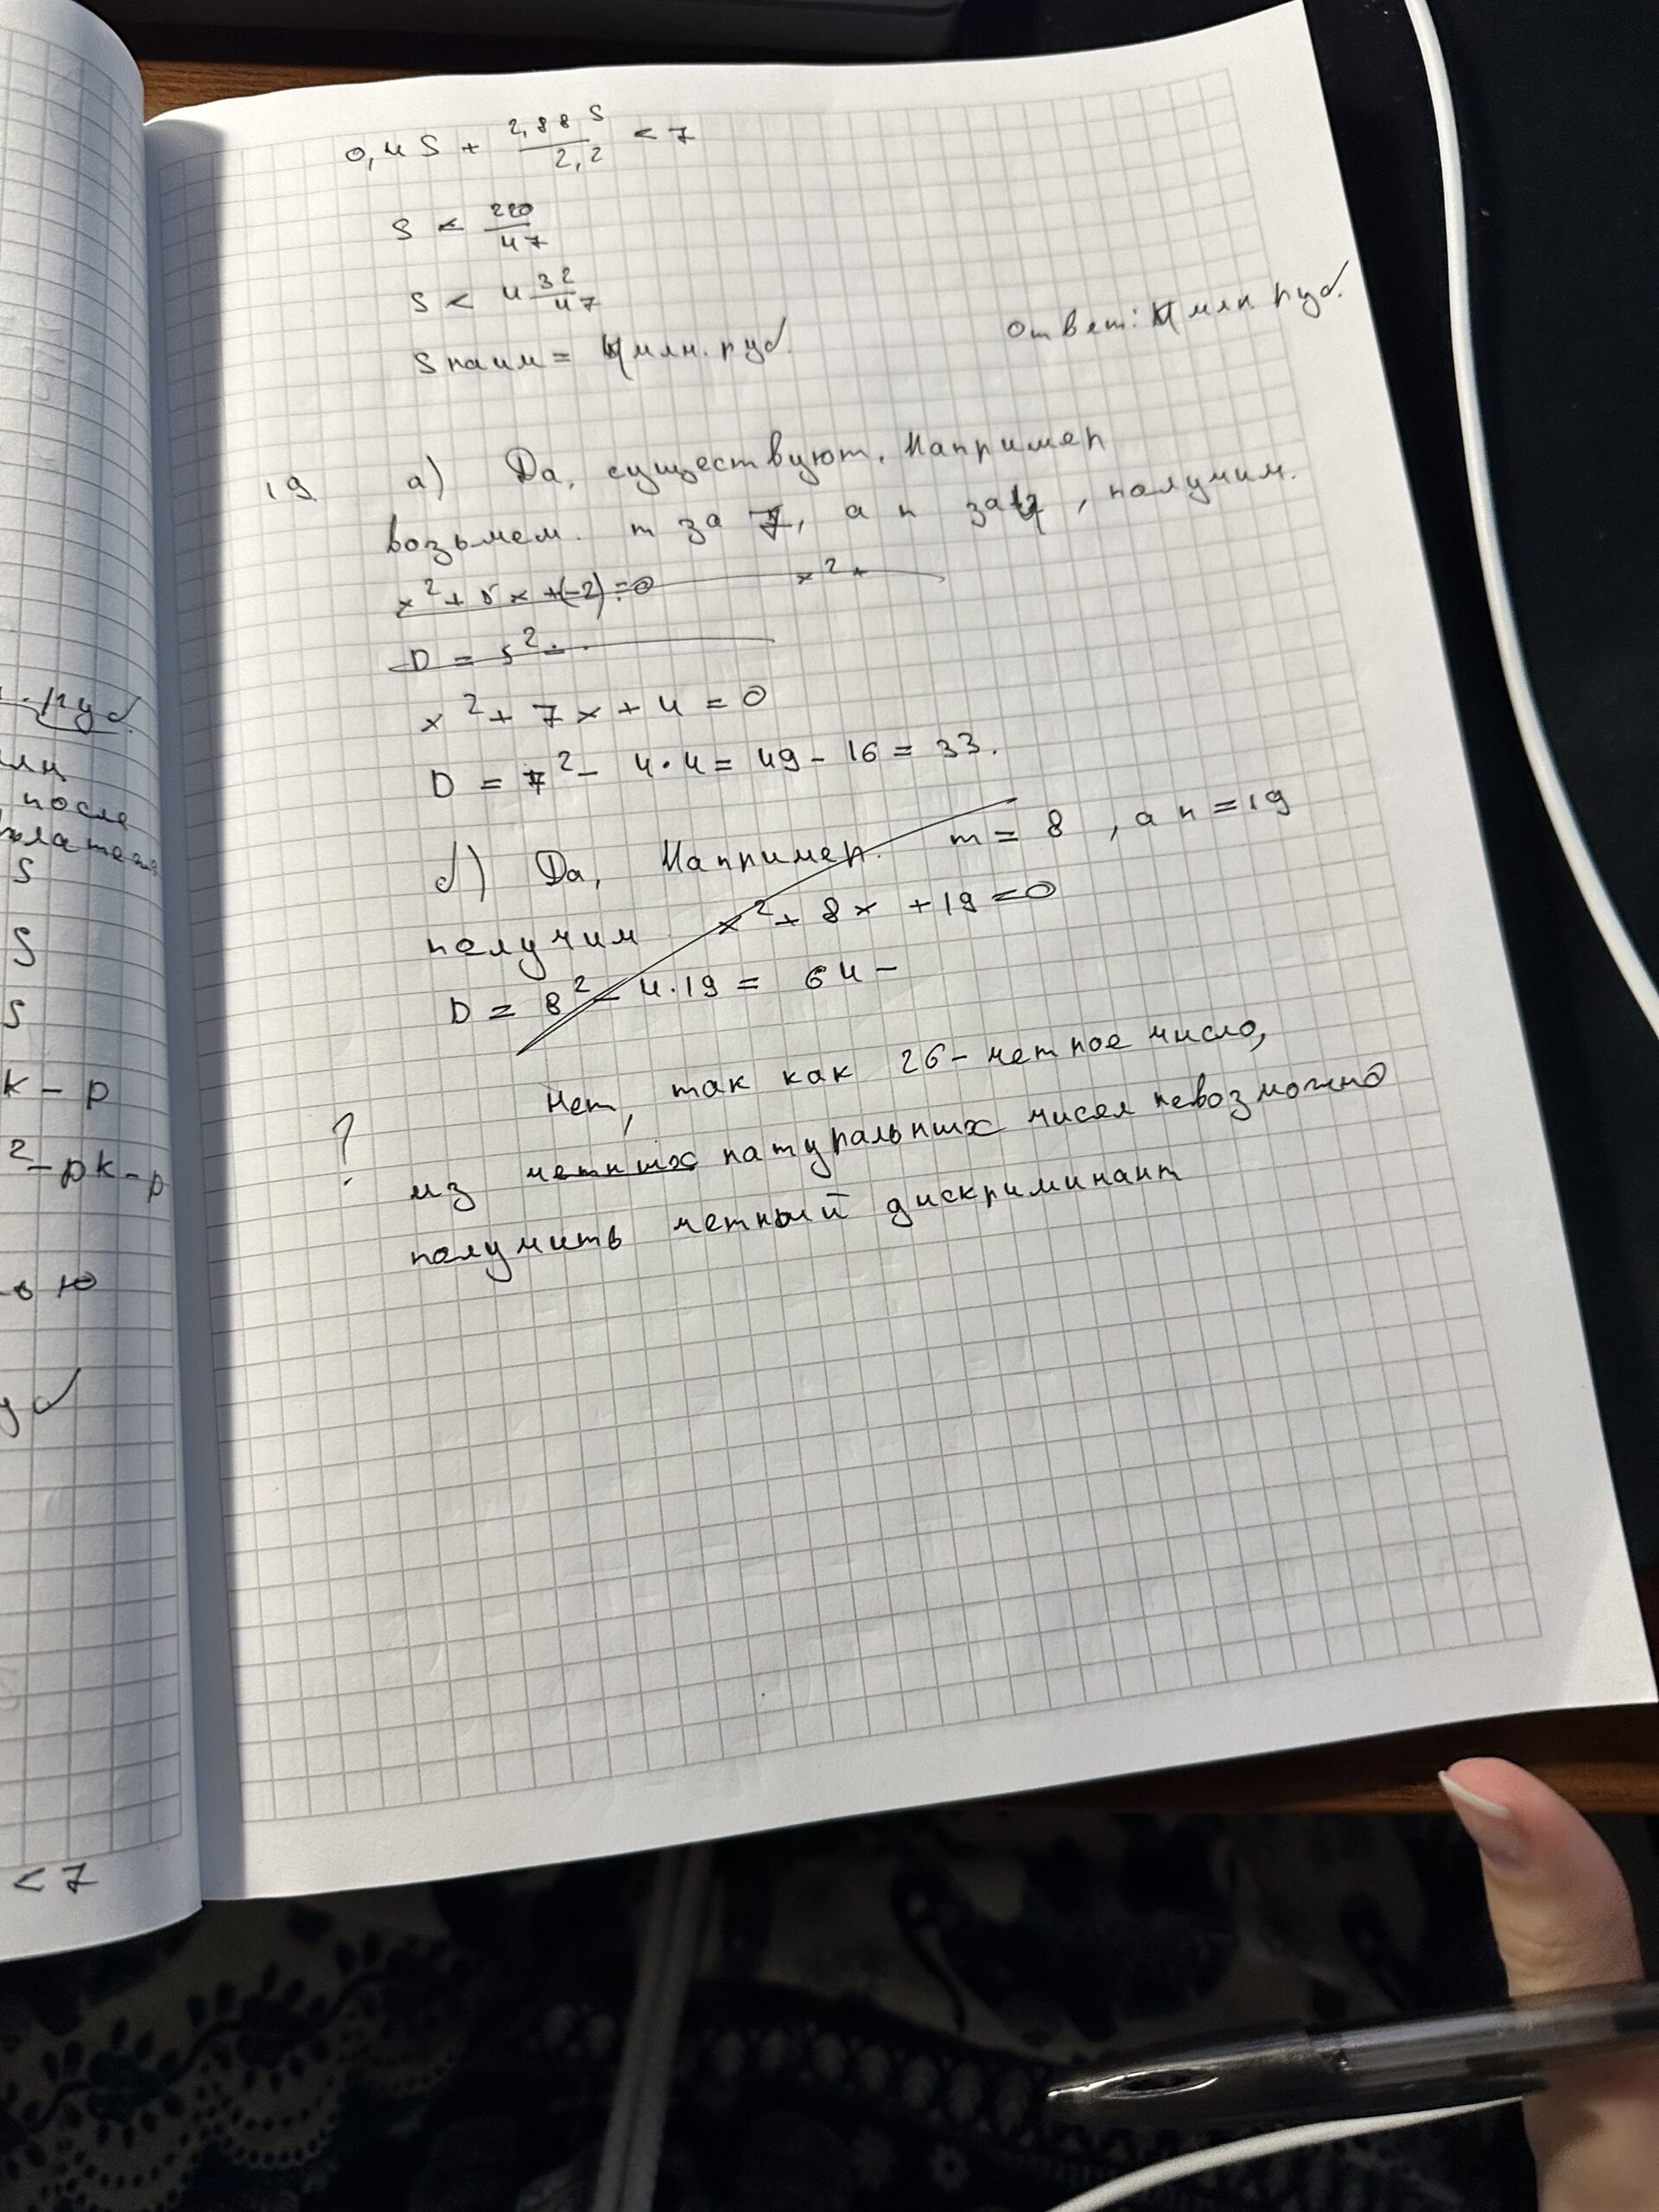 · руб
млн
после
S
S
S
k - p
2 - pk - p
ью
уб
< 7
0,4 S + 2,88 S / 2,2 < 7
S < 220/47
S < 4 32/47
S наим = 4 млн. руб.
Ответ: 4 млн руб.
19. а) Да, существуют. Например
возьмем m за 7, а n за 4, получим.
x² + 5x + (-2) = 0 x² +
D = 5² - .
x² + 7x + 4 = 0
D = 7² - 4·4 = 49 - 16 = 33.
б) Да, Например. m = 8, а n = 19
получим x² + 8x + 19 = 0
D = 8² - 4·19 = 64 -
Нет, так как 26 - четное число,
? из четных натуральных чисел невозможно
получить четный дискриминант